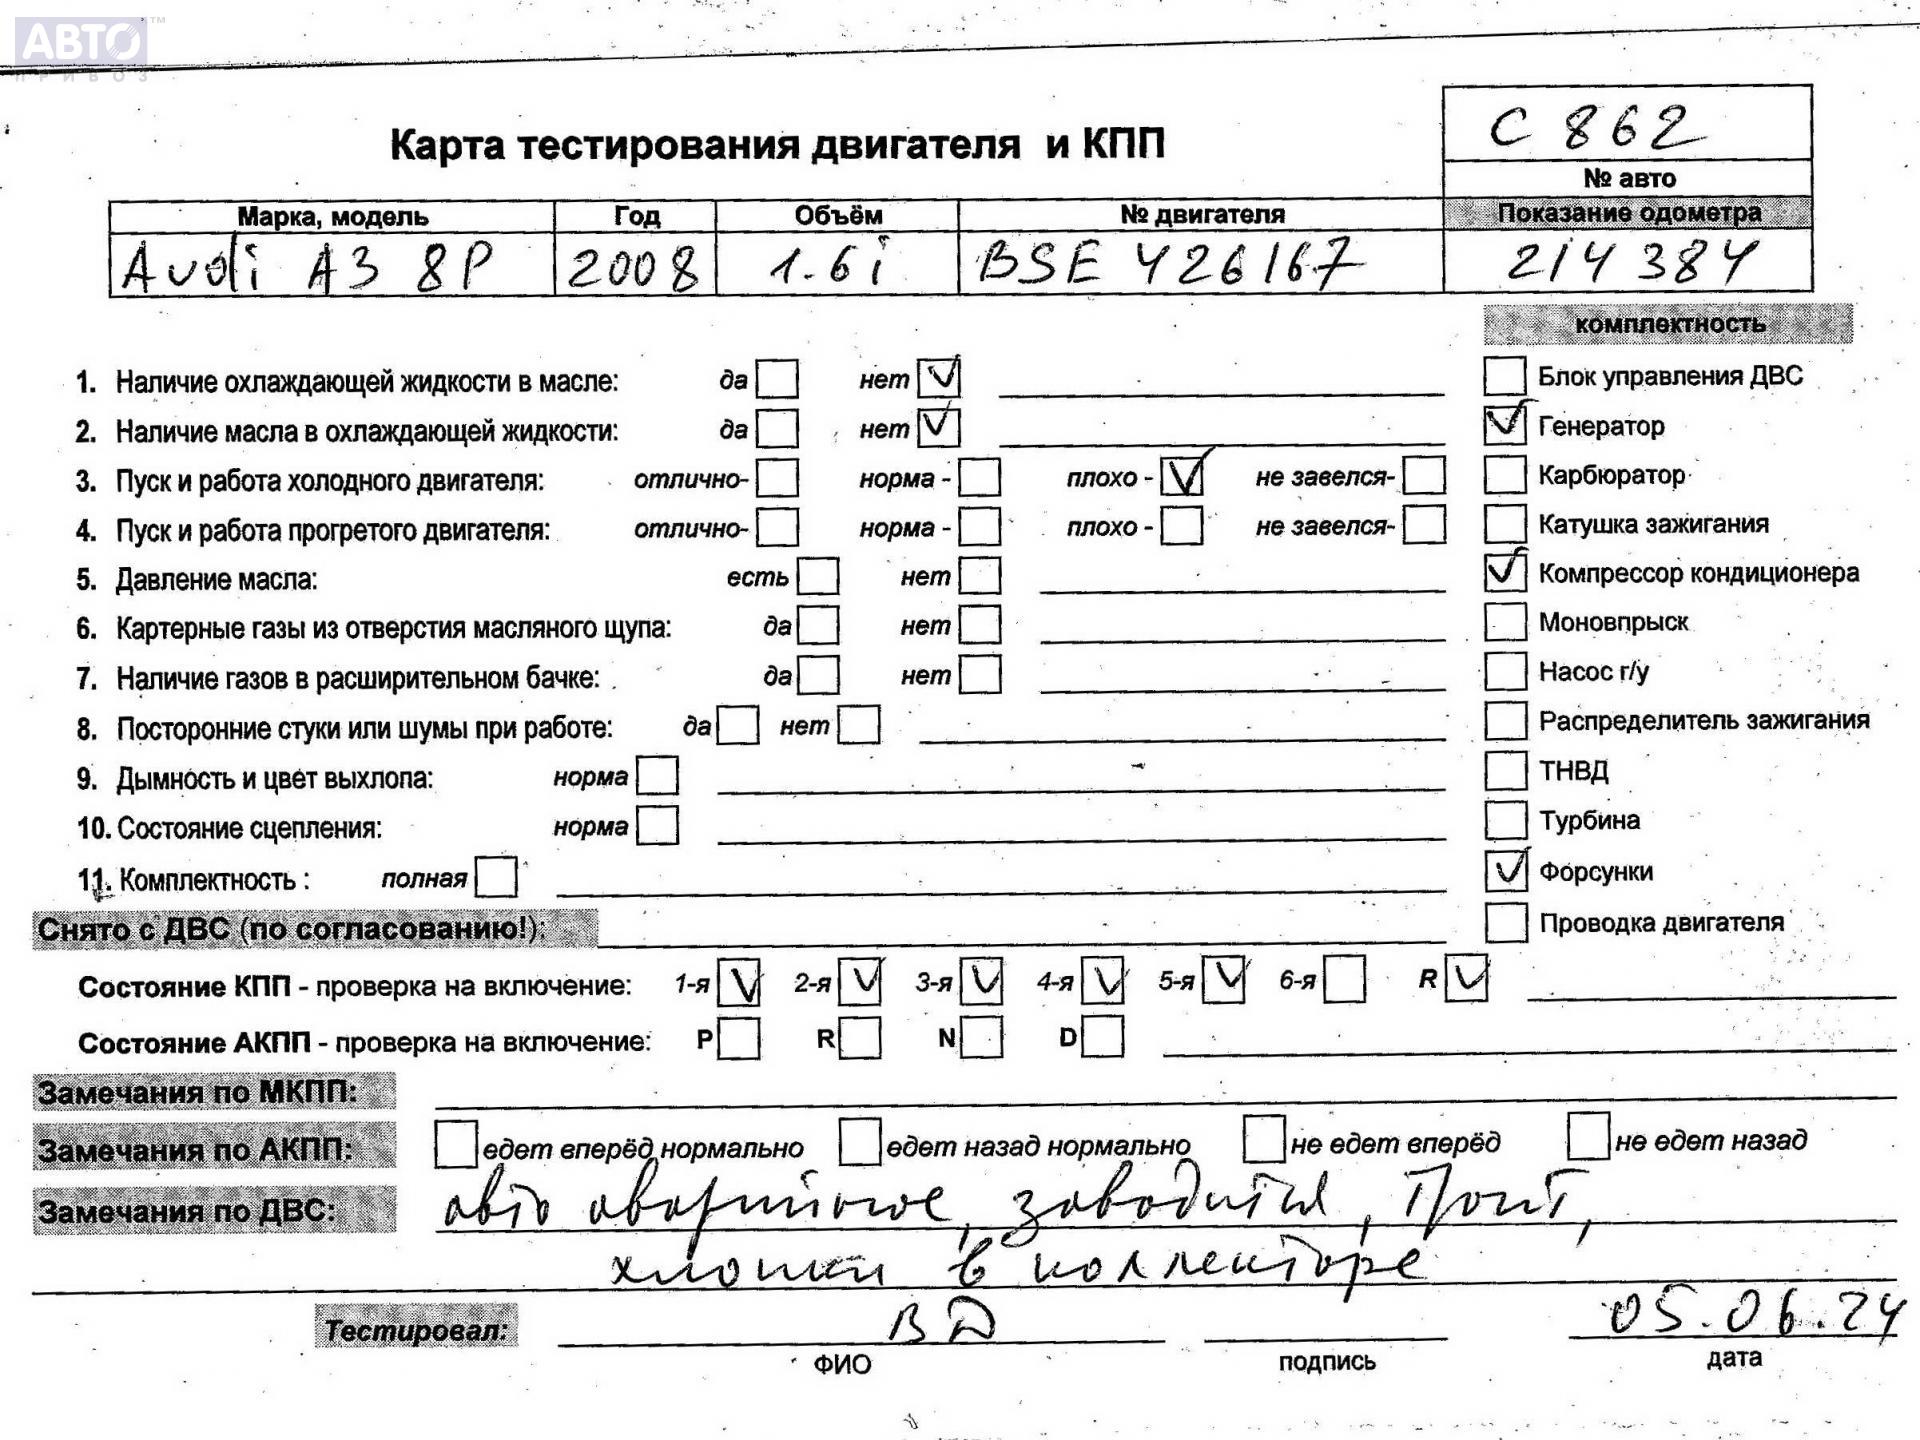 АВТО ™
ПРИВОЗ
С 862
№ авто
Карта тестирования двигателя и КПП
Марка, модель Год Объём № двигателя Показание одометра
Audi A3 8P 2008 1.6i BSE 426167 214 384
комплектность
1. Наличие охлаждающей жидкости в масле: да нет Блок управления ДВС
2. Наличие масла в охлаждающей жидкости: да нет Генератор
3. Пуск и работа холодного двигателя: отлично- норма - плохо - не завелся- Карбюратор
4. Пуск и работа прогретого двигателя: отлично- норма - плохо - не завелся- Катушка зажигания
5. Давление масла: есть нет Компрессор кондиционера
6. Картерные газы из отверстия масляного щупа: да нет Моновпрыск
7. Наличие газов в расширительном бачке: да нет Насос г/у
8. Посторонние стуки или шумы при работе: да нет Распределитель зажигания
9. Дымность и цвет выхлопа: норма ТНВД
10. Состояние сцепления: норма Турбина
11. Комплектность : полная Форсунки
Снято с ДВС (по согласованию!): Проводка двигателя
Состояние КПП - проверка на включение: 1-я 2-я 3-я 4-я 5-я 6-я R
Состояние АКПП - проверка на включение: P R N D
Замечания по МКПП:
Замечания по АКПП: едет вперёд нормально едет назад нормально не едет вперёд не едет назад
Замечания по ДВС: авто аварийное, заводится, троит,
хлопки в коллекторе
Тестировал: ВД 05.06.24
ФИО подпись дата